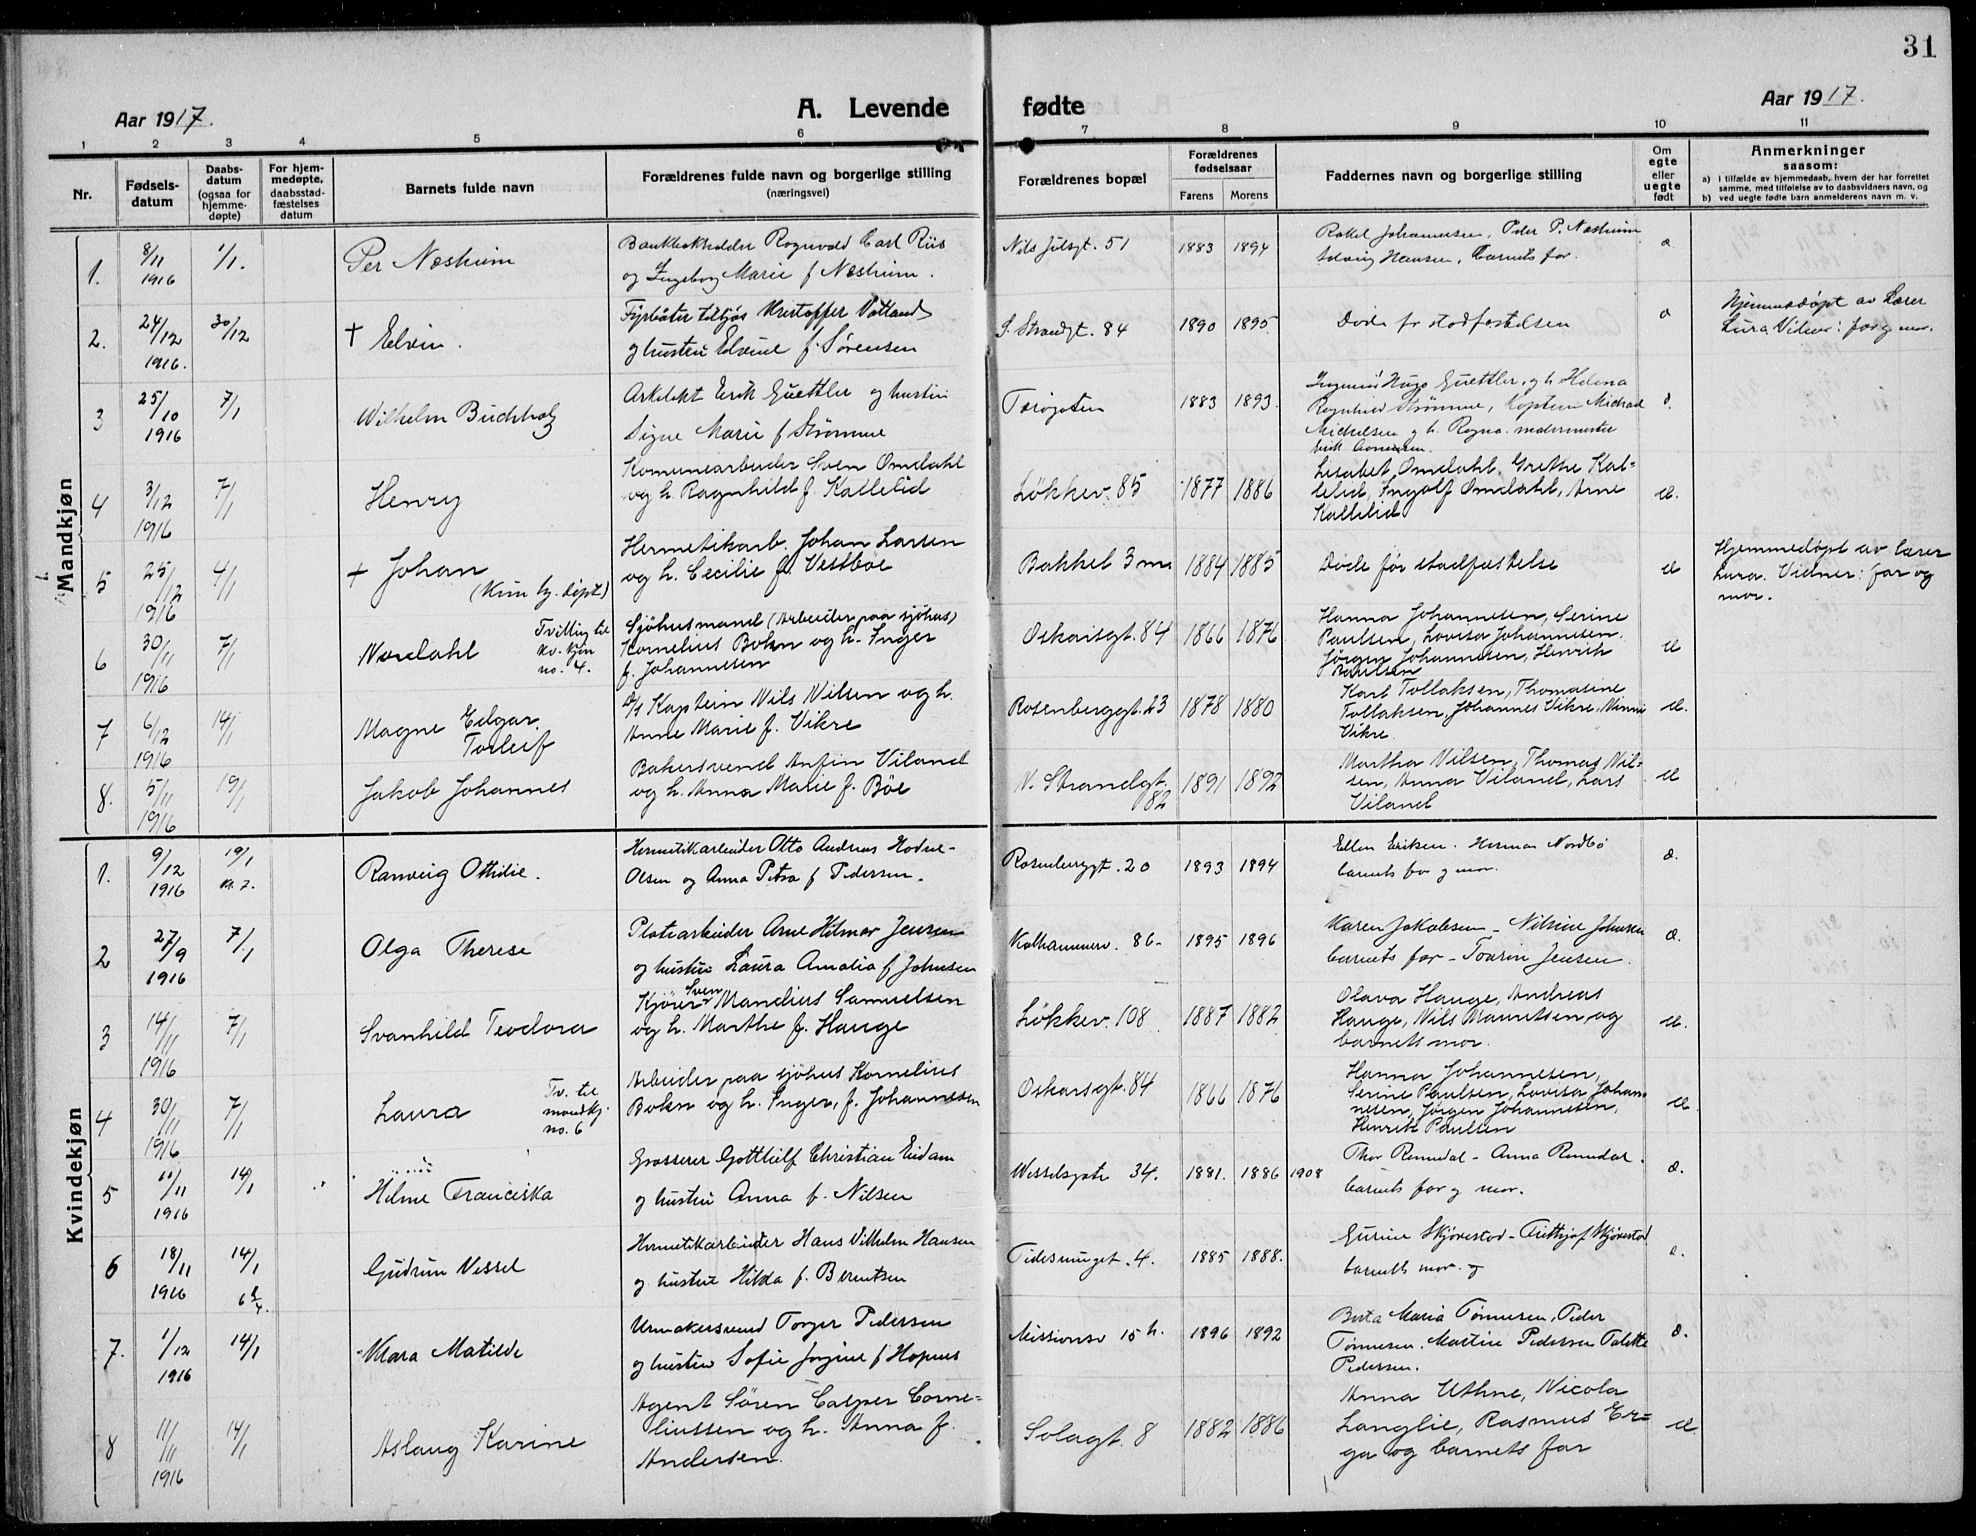 31
Aar 1917.
A. Levende fødte
Aar 1917.
1 2 3 4 5 6 7 8 9 10 11
Nr.
Fødsels-
datum
Daabs-
datum
(ogsaa for
hjemme-
døpte)
For hjem-
medøpte,
daabsstad-
fæstelses
datum
Barnets fulde navn
Forældrenes fulde navn og borgerlige stilling
(næringsvei)
Forældrenes bopæl
Forældrenes
fødselsaar
Farens Morens
Faddernes navn og borgerlige stilling
Om
egte
eller
uegte
født
Anmerkninger
saasom:
a) i tilfælde av hjemmedaab, hvem der har forrettet
samme, med tilføielse av to daabsvidners navn, og
b) ved uegte fødte barn anmelderens navn m. v.
Mandkjøn
1. 8/11 1916 1/1. Per Næsheim
Carl Riis
og Ingeborg Marie f Næsheim.
51 1883 1894
Rakel Johannesen, Peder P. Næsheim
Hansen, Barnets far.
2. 24/12 1916. 30/12 + Elvin.
og hustru Elvine f. Sørensen
S. Strandgt. 84 1890 1895
Døde før stadfæstelsen
Hjemmedøpt av Lærer
Lura Vidner: far og mor.
3 25/10 1916 7/1 Wilhelm Buchholz
Arkitekt Erik Guettler og hustru
Signe Marie f Strømme
1883 1893
Hugo Guettler, og h. Helena
Ragnhild Strømme, Kaptein Michael
Michelsen og h. Ragna.
4 3/12 1916 7/1 Henry
Komunearbeider Sven Omdahl
og h. Ragnhild f. Kallelid
Løkkev. 85 1877 1886
Lisabet Omdahl, Grethe Kal=
lelid, Ingolf Omdahl, Arne
Kallelid
5 25/12 1916 4/1 + Johan
(Kun hj. døpt)
Hermetikarb. Johan Larsen
og h. Cecilie f. Vestbøe
Bakkel 3 1884 1885
Døde før stadfæstelse
Hjemmedøpt av lærer
Lura. Vidner: far og
mor.
6 30/11 1916 7/1 Nordahl
Tvilling til
kv. kjøn
no. 4.
Sjøhusmand (Arbeider paa sjøhus)
Kornelius Bokn og h. Inger
f. Johannesen
Oskarsgt. 84 1866 1876
Hanna Johannesen, Serine
Paulsen, Lovisa Johannesen,
Jørgen Johannesen, Henrik
Paulsen
7 6/12 1916 14/1 Magne Edgar
Torleif
Kaptein Nils Nilsen og h.
Anne Marie f. Vikre
Rosenberggt. 23 1878 1880
Karl Tollaksen, Thomasine
Tollaksen, Johannes Vikre,
Vikre.
8. 5/11 1916 19/1 Jakob Johannes
Bakersvend Anfin Viland
og h. Anna Malie f. Bøe
N. Strandgt.
82 1891 1892
Martha Nilsen, Thomas Nil-
sen, Anna Viland, Lars
Viland
Kvindekjøn
1. 9/12 1916 19/1 Ranveig Othilie.
Hermetikarbeider Otto Andreas Hodne-
Olsen og Anna Petra f Pedersen.
20 1893 1894
Ellen Eriksen. Herman Nordbø
barnets far og mor.
2 27/9 1916 7/1 Olga Therese
Platearbeider Arne Hilmar Jensen
og hustru Laura Amalia f Johnsen
86- 1895 1896
Karen Jakobsen - Nilsine Johnsen
barnets far - Jensen.
3 14/11 1916 7/1 Svanhild Teodora
Kjører Sven Mandius Samuelsen
og h. Marthe f. Hauge
Løkkev. 108 1887 1882
Olava Hauge, Andreas
Hauge, Nils Mauritsen, og
barnets mor.
4 30/11 1916 7/1 Laura
Tv. til
mandkj.
no. 6
Arbeider paa sjøhus Kornelius
Bokn og h. Inger, f. Johannesen
Oskarsgt. 84 1866 1876
Hanna Johannesen,
Serine Paulsen, Lovisa Johan-
nesen, Jørgen Johannesen,
Henrik Paulsen
5 1916 14/1 Franciska
Grosserer Gotthilf Christian Eidam
og hustru Anna f. Nilsen
34. 1881. 1886 1908
Thor Remedal - Anna Remedal.
barnets far og mor.
6 18/11 1916 14/1 Gudrun Vessel
Hermetikarbeider Hans Vilhelm Hansen
og hustru Hilda f. Berntsen
4. 1885 1888.
Gurine Skjørestad - Skjørestad
barnets mor. og
7. 1/12 1916 14/1 Klara Matilde
Urmakersvend Torger Pedersen
og hustru Sofie f
15 h. 1896 1892
Berta Maria Tønnesen, Peder
Tønnesen, Martine Pedersen
Pedersen.
8 11/11 1916 14/1 Aslaug Karine
Agent Søren Casper Corne=
liussen og h. Anna f.
Andersen.
Solagt. 8 1882 1886
Anna Uthne, Nicola
Langlie, Rasmus Er=
ga og barnets far